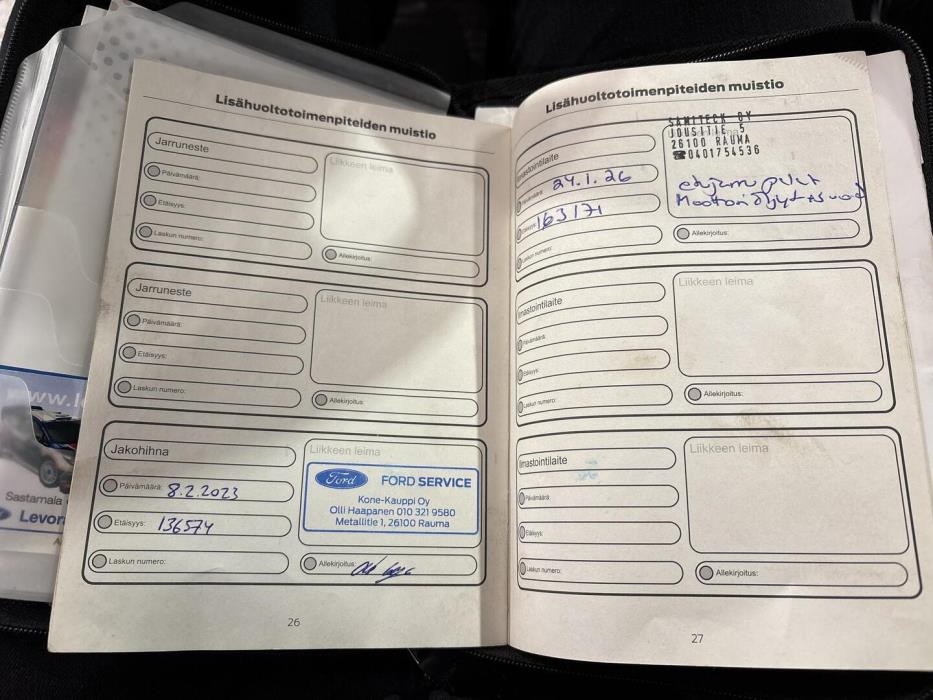 Lisähuoltotoimenpiteiden muistio
Jarruneste
Liikkeen leima
Päivämäärä:
Etäisyys:
Laskun numero:
Allekirjoitus:
Jarruneste
Liikkeen leima
Päivämäärä:
Etäisyys:
Laskun numero:
Allekirjoitus:
Jakohihna
Liikkeen leima
Päivämäärä: 8.2.2023
Etäisyys: 136574
Laskun numero:
Ford FORD SERVICE
Kone-Kauppi Oy
Olli Haapanen 010 321 9580
Metallitie 1, 26100 Rauma
Allekirjoitus:
26
Lisähuoltotoimenpiteiden muistio
SAMITECK OY
JOUSITIE 5
26100 RAUMA
☎0401754536
Ilmastointilaite
Päivämäärä: 24.1.26
Etäisyys: 163171
Laskun numero:
Moottoriöljyt
Allekirjoitus:
Ilmastointilaite
Liikkeen leima
Päivämäärä:
Etäisyys:
Laskun numero:
Allekirjoitus:
Ilmastointilaite
Liikkeen leima
Päivämäärä:
Etäisyys:
Laskun numero:
Allekirjoitus:
27
www.l
Sastamala
Levora